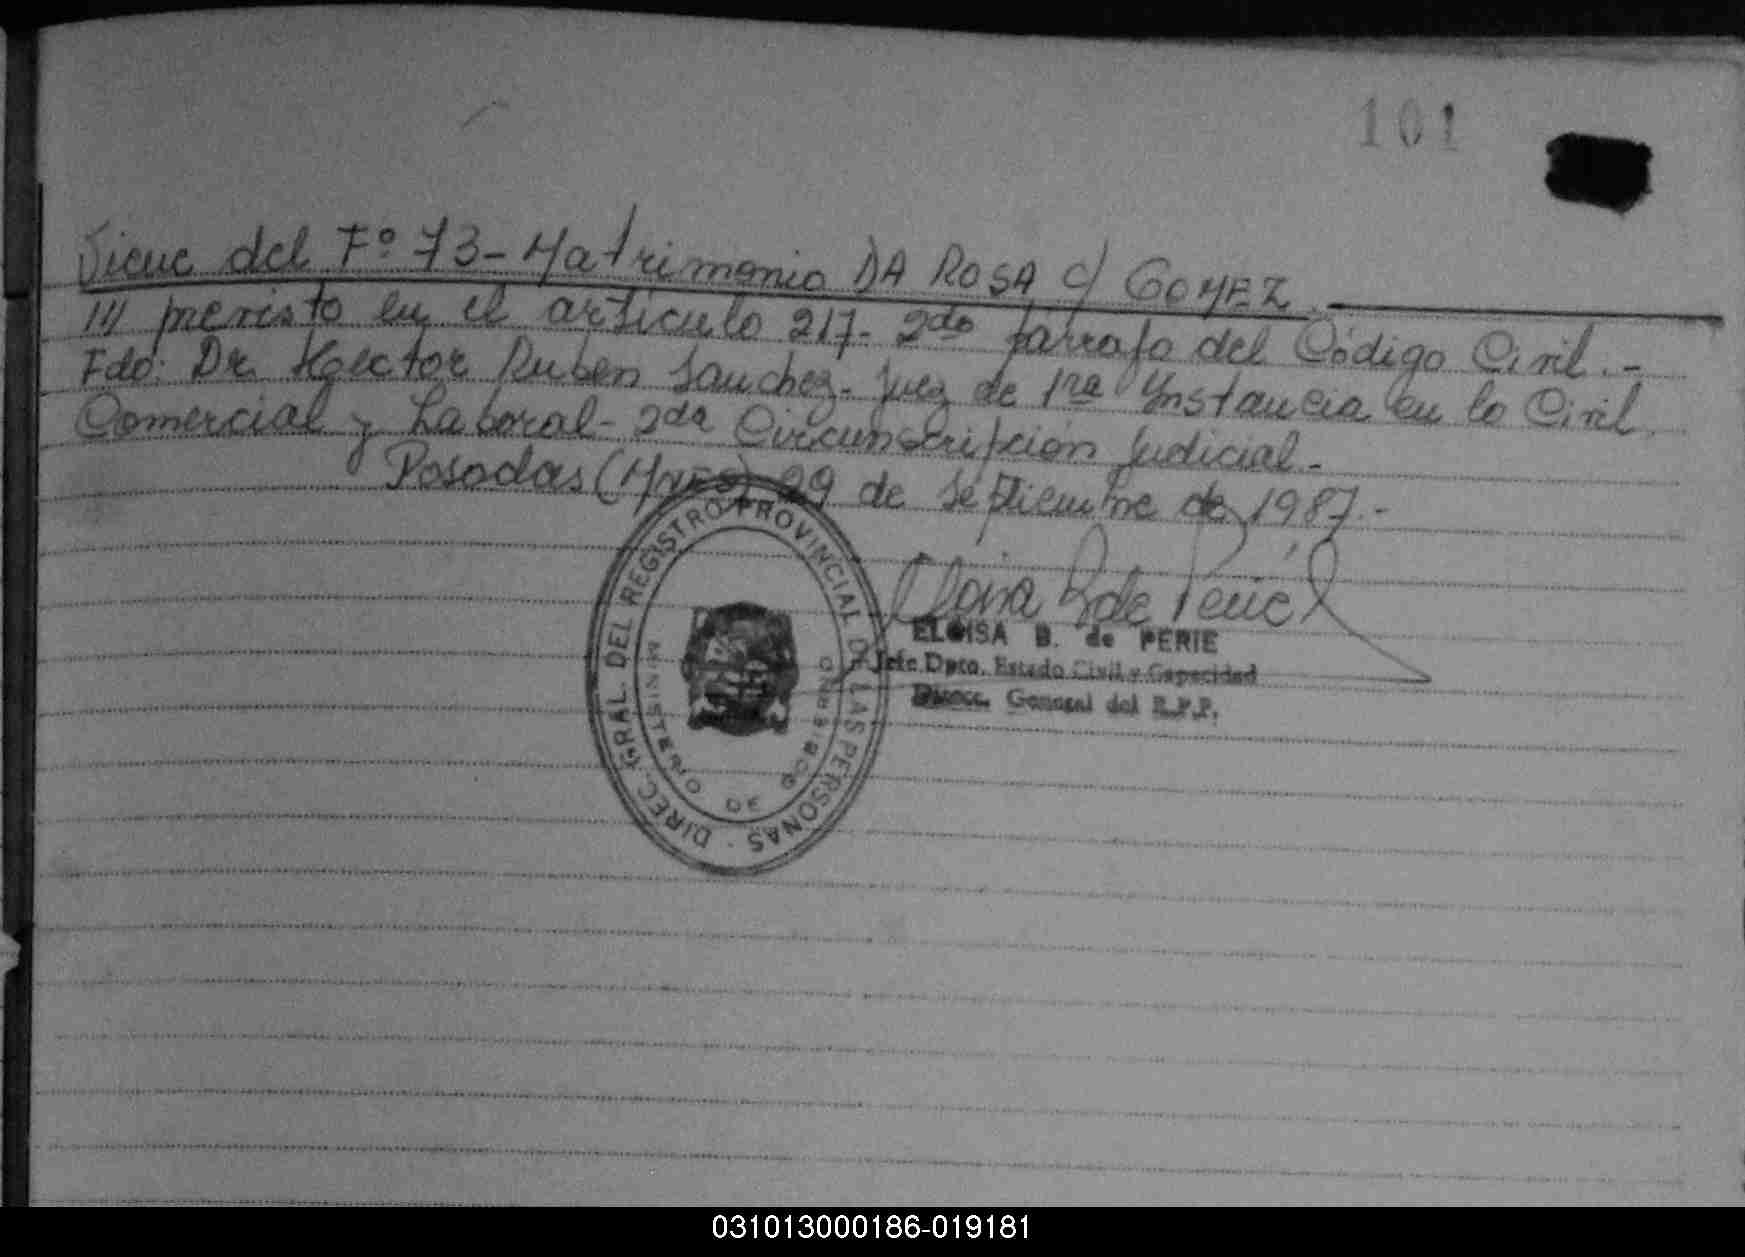 101
Viene del Fº 73 - Matrimonio DA ROSA c/ GOMEZ.
/// previsto en el artículo 217- 2do párrafo del Código Civil.-
Fdo: Dr. Hector Ruben Sanchez- Juez de 1ra Instancia en lo Civil,
Comercial y Laboral- 2da Circunscripción Judicial.-
Posadas (Mnes) 29 de Septiembre de 1987.-
ELOISA B. de PERIE
Jefe Dpto. Estado Civil y Capacidad
Direcc. General del R.P.P.
DIREC. GRAL. DEL REGISTRO PROVINCIAL DE LAS PERSONAS
MINISTERIO DE GOBIERNO
031013000186-019181